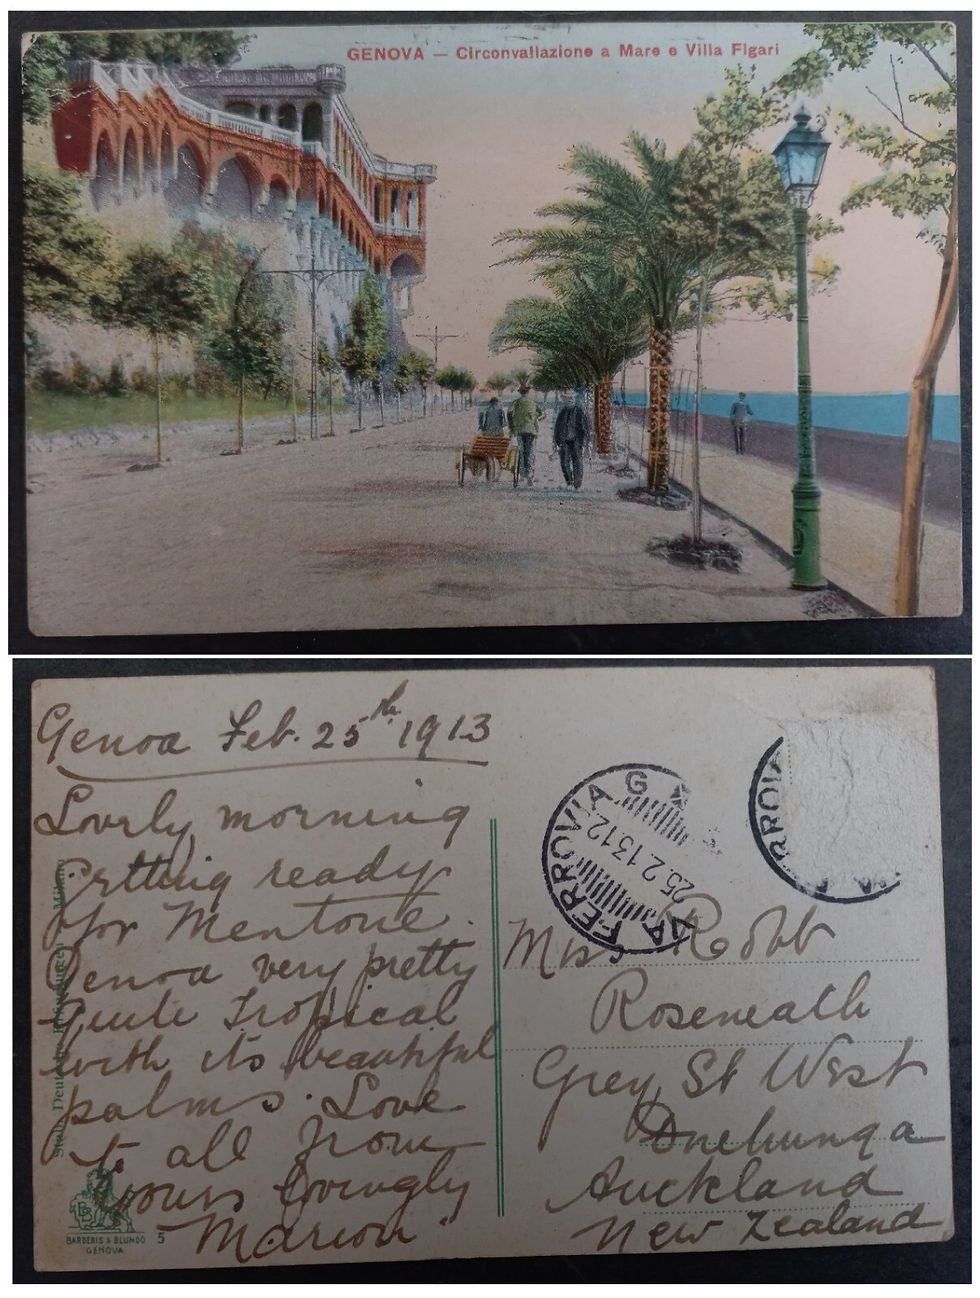 GENOVA — Circonvallazione a Mare e Villa Figari
Genoa Feb. 25th 1913
Lovely morning
getting ready
for Mentone.
Genoa very pretty
Quite Tropical
with its beautiful
palms. Love
to all from
yours lovingly
Marion
Miss Robb
Roseneath
Grey St West
Onehunga
Auckland
New Zealand
FERROVIA
25.2.13.12
RROVIA
Milano
BARBERIS & BLUNDO
GENOVA
5